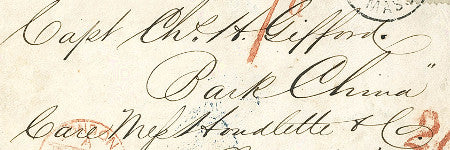 MASS
Capt Chs. H. Gifford.
Bark China"
Care Mess Houdlette & Co.